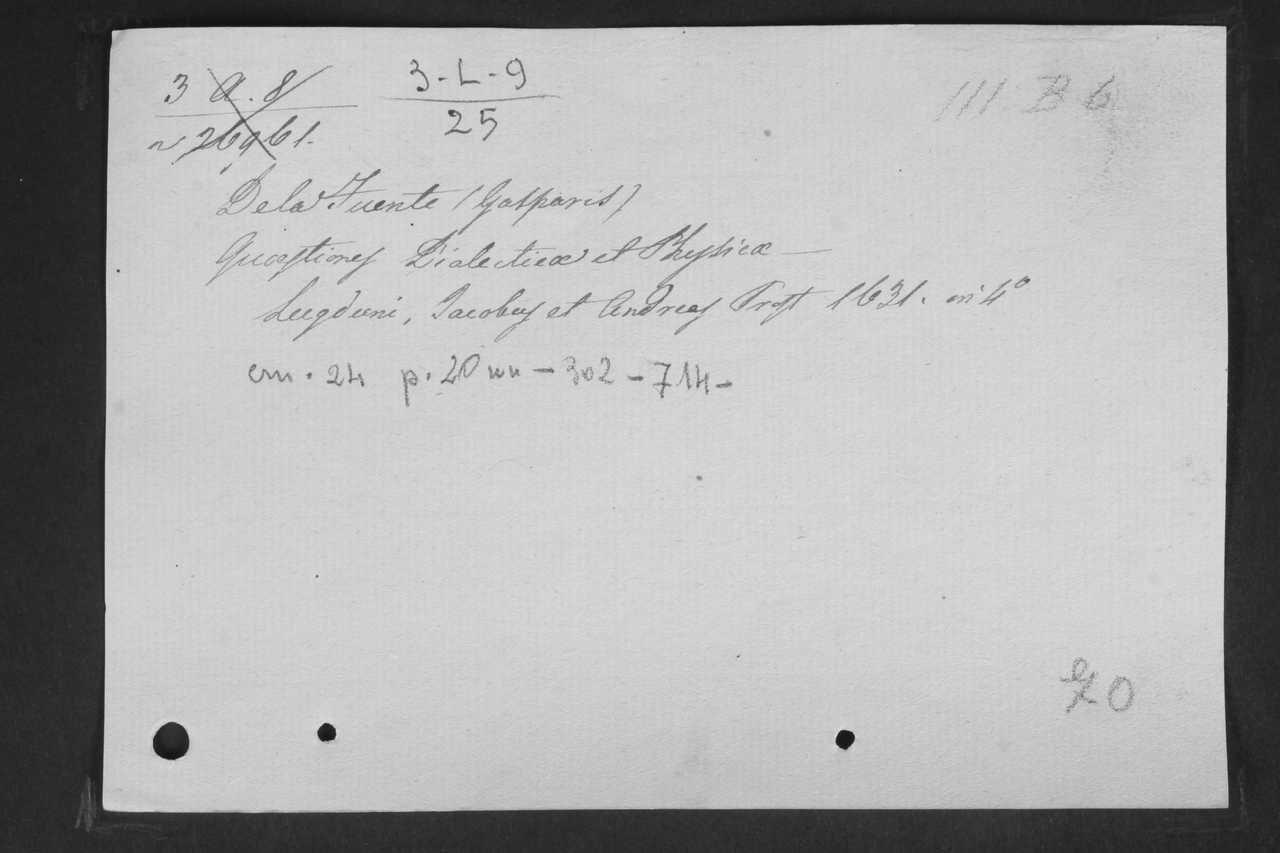 3 a. 8
3-L-9
III B 6
26961.
25
De la Fuente (Gasparis)
Quæstiones Dialecticæ et Physicæ —
Lugduni, Jacobus et Andreas Prost 1631. in 4º
cm. 24 p. 20 nn - 302 - 714 -